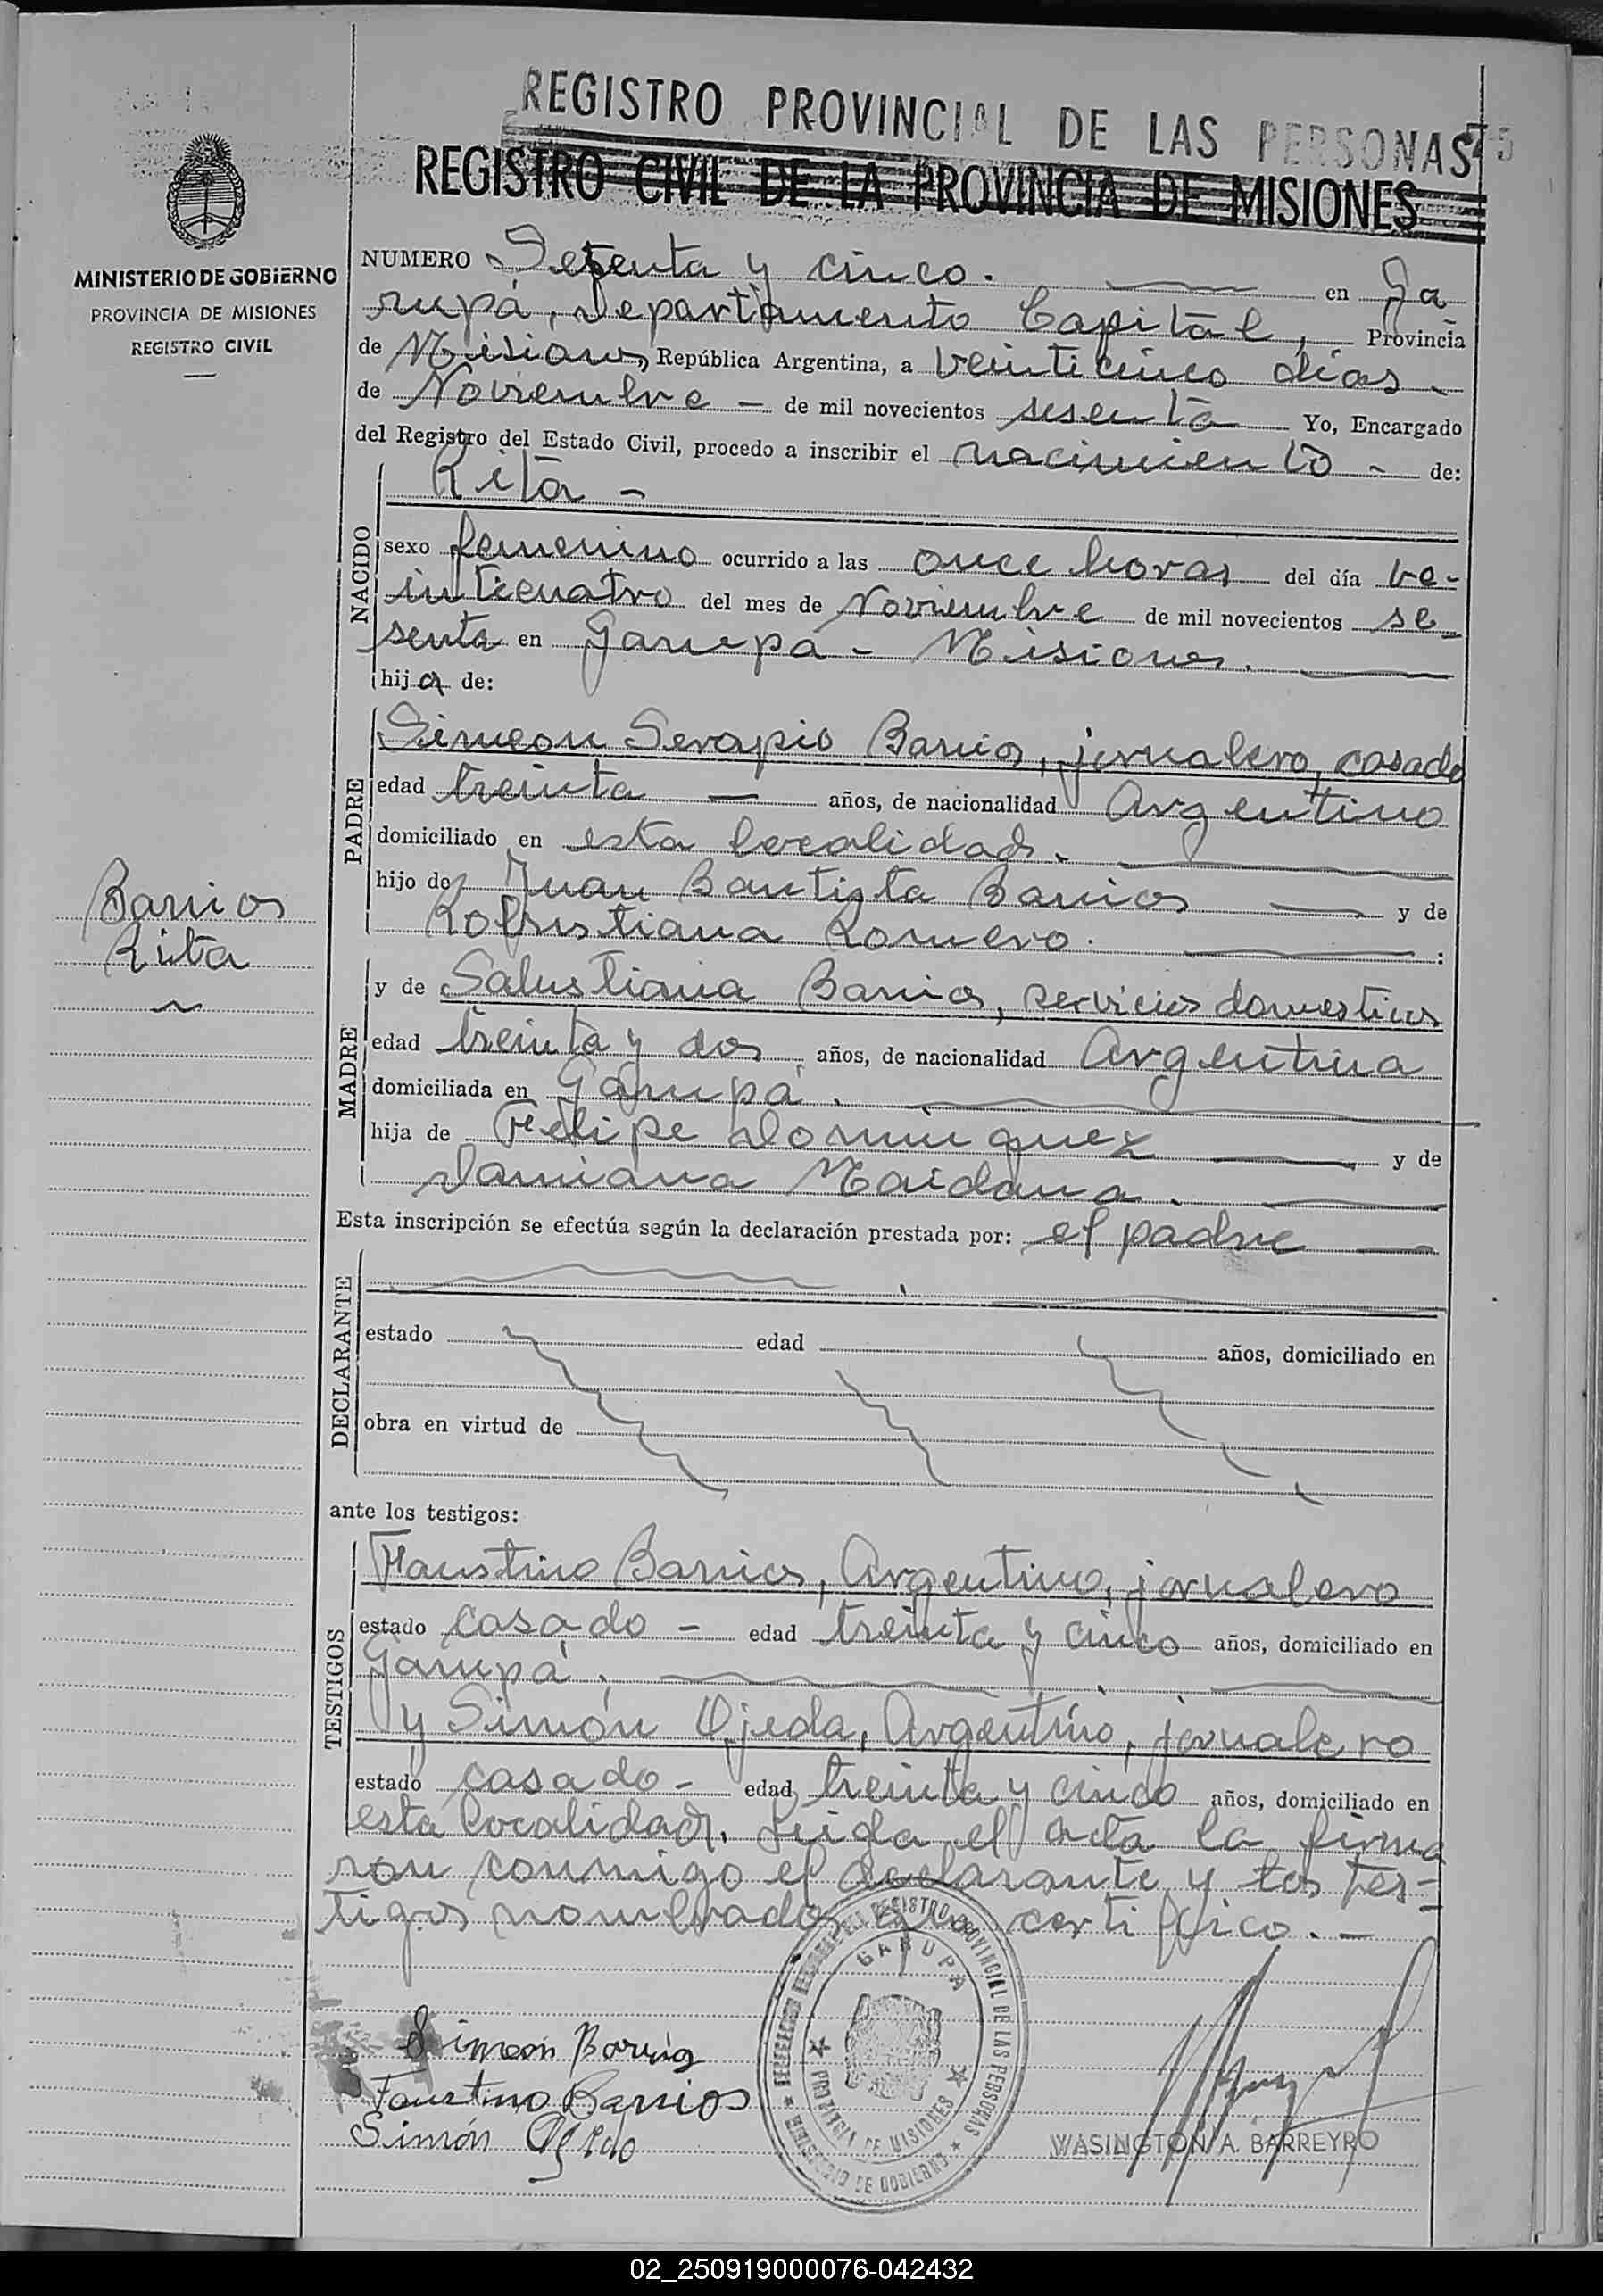 REGISTRO PROVINCIAL DE LAS PERSONAS
75
REGISTRO CIVIL DE LA PROVINCIA DE MISIONES
MINISTERIO DE GOBIERNO
PROVINCIA DE MISIONES
REGISTRO CIVIL
NUMERO Setenta y cinco. en Ga
rupá, Departamento Capital, Provincia
de Misiones, República Argentina, a veinticinco días
de Noviembre - de mil novecientos sesenta Yo, Encargado
del Registro del Estado Civil, procedo a inscribir el nacimiento - de:
Rita -
NACIDO
sexo femenino ocurrido a las once horas del día ve-
inticuatro del mes de Noviembre de mil novecientos se_
senta en Garupá - Misiones.
hija de:
PADRE
Simeon Serapio Barrios, jornalero, casado
edad treinta — años, de nacionalidad Argentino
domiciliado en esta localidad.
hijo de Juan Bautista Barrios y de
Robustiana Romero. :
Barrios
Rita
MADRE
y de Salustiana Barrios, servicios domesticos
edad treinta y dos años, de nacionalidad Argentina
domiciliada en Garupá.
hija de Felipe Dominguez y de
Damiana Maidana.
Esta inscripción se efectúa según la declaración prestada por: el padre
DECLARANTE
estado edad años, domiciliado en
obra en virtud de
ante los testigos:
TESTIGOS
Faustino Barrios, Argentino, jornalero
estado casado - edad treinta y cinco años, domiciliado en
Garupá.
y Simón Ojeda, Argentino, jornalero
estado casado - edad treinta y cinco años, domiciliado en
esta localidad. Leida el acta la firma
ron conmigo el declarante y los tes-
tigos nombrados que certifico. -
REGISTRO PROVINCIAL DE LAS PERSONAS
GARUPA
PROVINCIA DE MISIONES
MINISTERIO DE GOBIERNO
Simeon Barrios
Faustino Barrios
Simón
WASINGTON A. BARREYRO
02_250919000076-042432